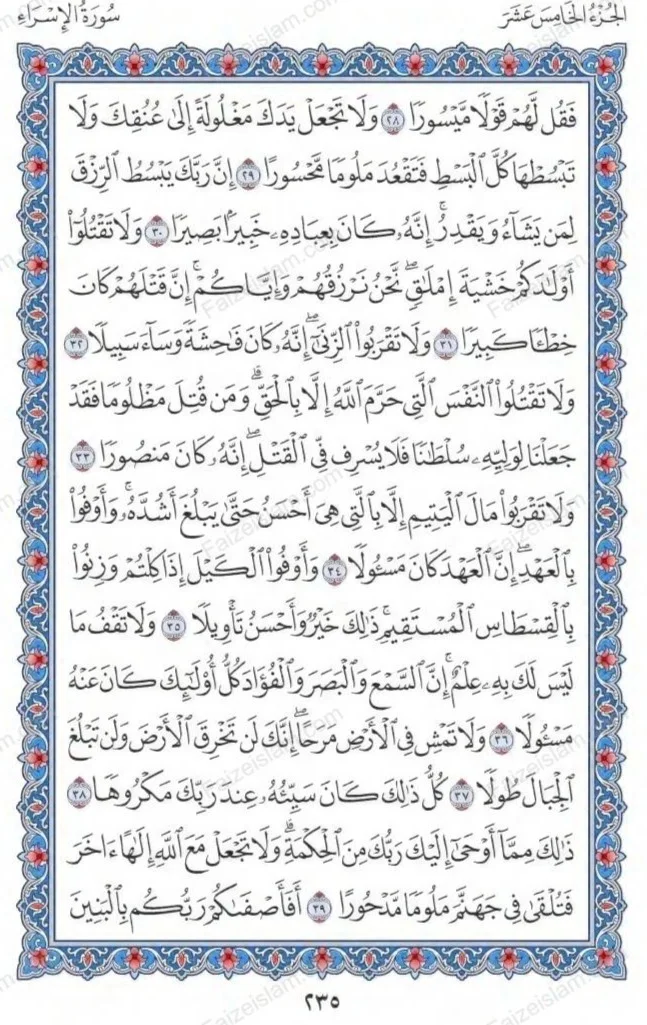 الجُزْءُ الخَامِسَ عَشَرَ
سُورَةُ الإِسْرَاءِ
فَقُل لَّهُمْ قَوْلًا مَّيْسُورًا ٢٨ وَلَا تَجْعَلْ يَدَكَ مَغْلُولَةً إِلَىٰ عُنُقِكَ وَلَا
تَبْسُطْهَا كُلَّ الْبَسْطِ فَتَقْعُدَ مَلُومًا مَّحْسُورًا ٢٩ إِنَّ رَبَّكَ يَبْسُطُ الرِّزْقَ
لِمَن يَشَآءُ وَيَقْدِرُ ۚ إِنَّهُۥ كَانَ بِعِبَادِهِۦ خَبِيرًۢا بَصِيرًا ٣٠ وَلَا تَقْتُلُوٓا۟
أَوْلَٰدَكُمْ خَشْيَةَ إِمْلَٰقٍ ۖ نَّحْنُ نَرْزُقُهُمْ وَإِيَّاكُمْ ۚ إِنَّ قَتْلَهُمْ كَانَ
خِطْـًٔا كَبِيرًا ٣١ وَلَا تَقْرَبُوا۟ الزِّنَىٰٓ ۖ إِنَّهُۥ كَانَ فَٰحِشَةً وَسَآءَ سَبِيلًا ٣٢
وَلَا تَقْتُلُوا۟ النَّفْسَ الَّتِى حَرَّمَ اللَّهُ إِلَّا بِالْحَقِّ ۗ وَمَن قُتِلَ مَظْلُومًا فَقَدْ
جَعَلْنَا لِوَلِيِّهِۦ سُلْطَٰنًا فَلَا يُسْرِف فِّى الْقَتْلِ ۖ إِنَّهُۥ كَانَ مَنصُورًا ٣٣
وَلَا تَقْرَبُوا۟ مَالَ الْيَتِيمِ إِلَّا بِالَّتِى هِىَ أَحْسَنُ حَتَّىٰ يَبْلُغَ أَشُدَّهُۥ ۚ وَأَوْفُوا۟
بِالْعَهْدِ ۖ إِنَّ الْعَهْدَ كَانَ مَسْـُٔولًا ٣٤ وَأَوْفُوا۟ الْكَيْلَ إِذَا كِلْتُمْ وَزِنُوا۟
بِالْقِسْطَاسِ الْمُسْتَقِيمِ ۚ ذَٰلِكَ خَيْرٌ وَأَحْسَنُ تَأْوِيلًا ٣٥ وَلَا تَقْفُ مَا
لَيْسَ لَكَ بِهِۦ عِلْمٌ ۚ إِنَّ السَّمْعَ وَالْبَصَرَ وَالْفُؤَادَ كُلُّ أُو۟لَٰٓئِكَ كَانَ عَنْهُ
مَسْـُٔولًا ٣٦ وَلَا تَمْشِ فِى الْأَرْضِ مَرَحًا ۖ إِنَّكَ لَن تَخْرِقَ الْأَرْضَ وَلَن تَبْلُغَ
الْجِبَالَ طُولًا ٣٧ كُلُّ ذَٰلِكَ كَانَ سَيِّئُهُۥ عِندَ رَبِّكَ مَكْرُوهًا ٣٨
ذَٰلِكَ مِمَّآ أَوْحَىٰٓ إِلَيْكَ رَبُّكَ مِنَ الْحِكْمَةِ ۗ وَلَا تَجْعَلْ مَعَ اللَّهِ إِلَٰهًا ءَاخَرَ
فَتُلْقَىٰ فِى جَهَنَّمَ مَلُومًا مَّدْحُورًا ٣٩ أَفَأَصْفَىٰكُمْ رَبُّكُم بِالْبَنِينَ
٢٣٥
Faizeislam.com